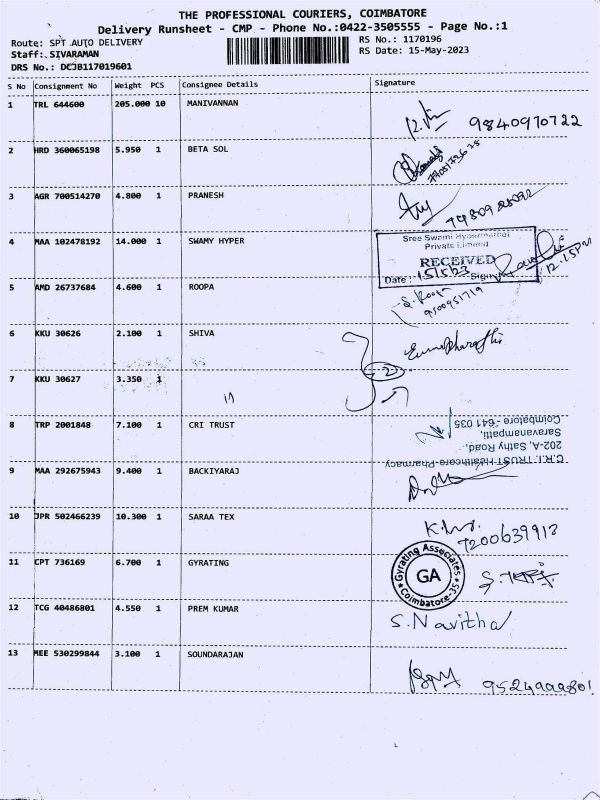 THE PROFESSIONAL COURIERS, COIMBATORE
Delivery Runsheet - CMP - Phone No.:0422-3505555 - Page No.:1
Route: SPT AUTO DELIVERY
RS No.: 1170196
Staff: SIVARAMAN
RS Date: 15-May-2023
DRS No.: DCJB117019601
S No Consignment No Weight PCS Consignee Details Signature
1 TRL 644600 205.000 10 MANIVANNAN
9840970722
2 HRD 360065198 5.950 1 BETA SOL
3 AGR 700514270 4.800 1 PRANESH
4 MAA 102478192 14.000 1 SWAMY HYPER
Sree Swami Hypermarket
Private Limited
RECEIVED
Date: 15/5/23 Sign
5 AMD 26737684 4.600 1 ROOPA
S. Roopa
9500951719
6 KKU 30626 2.100 1 SHIVA
7 KKU 30627 3.350 1 11
2
8 TRP 2001848 7.100 1 CRI TRUST
C.R.I. TRUST-Healthcare-Pharmacy
202-A, Sathy Road,
Saravanampatti,
Coimbatore - 641 035
9 MAA 292675943 9.400 1 BACKIYARAJ
10 JPR 502466239 10.300 1 SARAA TEX
7200639913
11 CPT 736169 6.700 1 GYRATING
Gyrating Associates
GA
Coimbatore-35
12 TCG 40486801 4.550 1 PREM KUMAR
S. Navitha
13 MEE 530299844 3.100 1 SOUNDARAJAN
9524999801